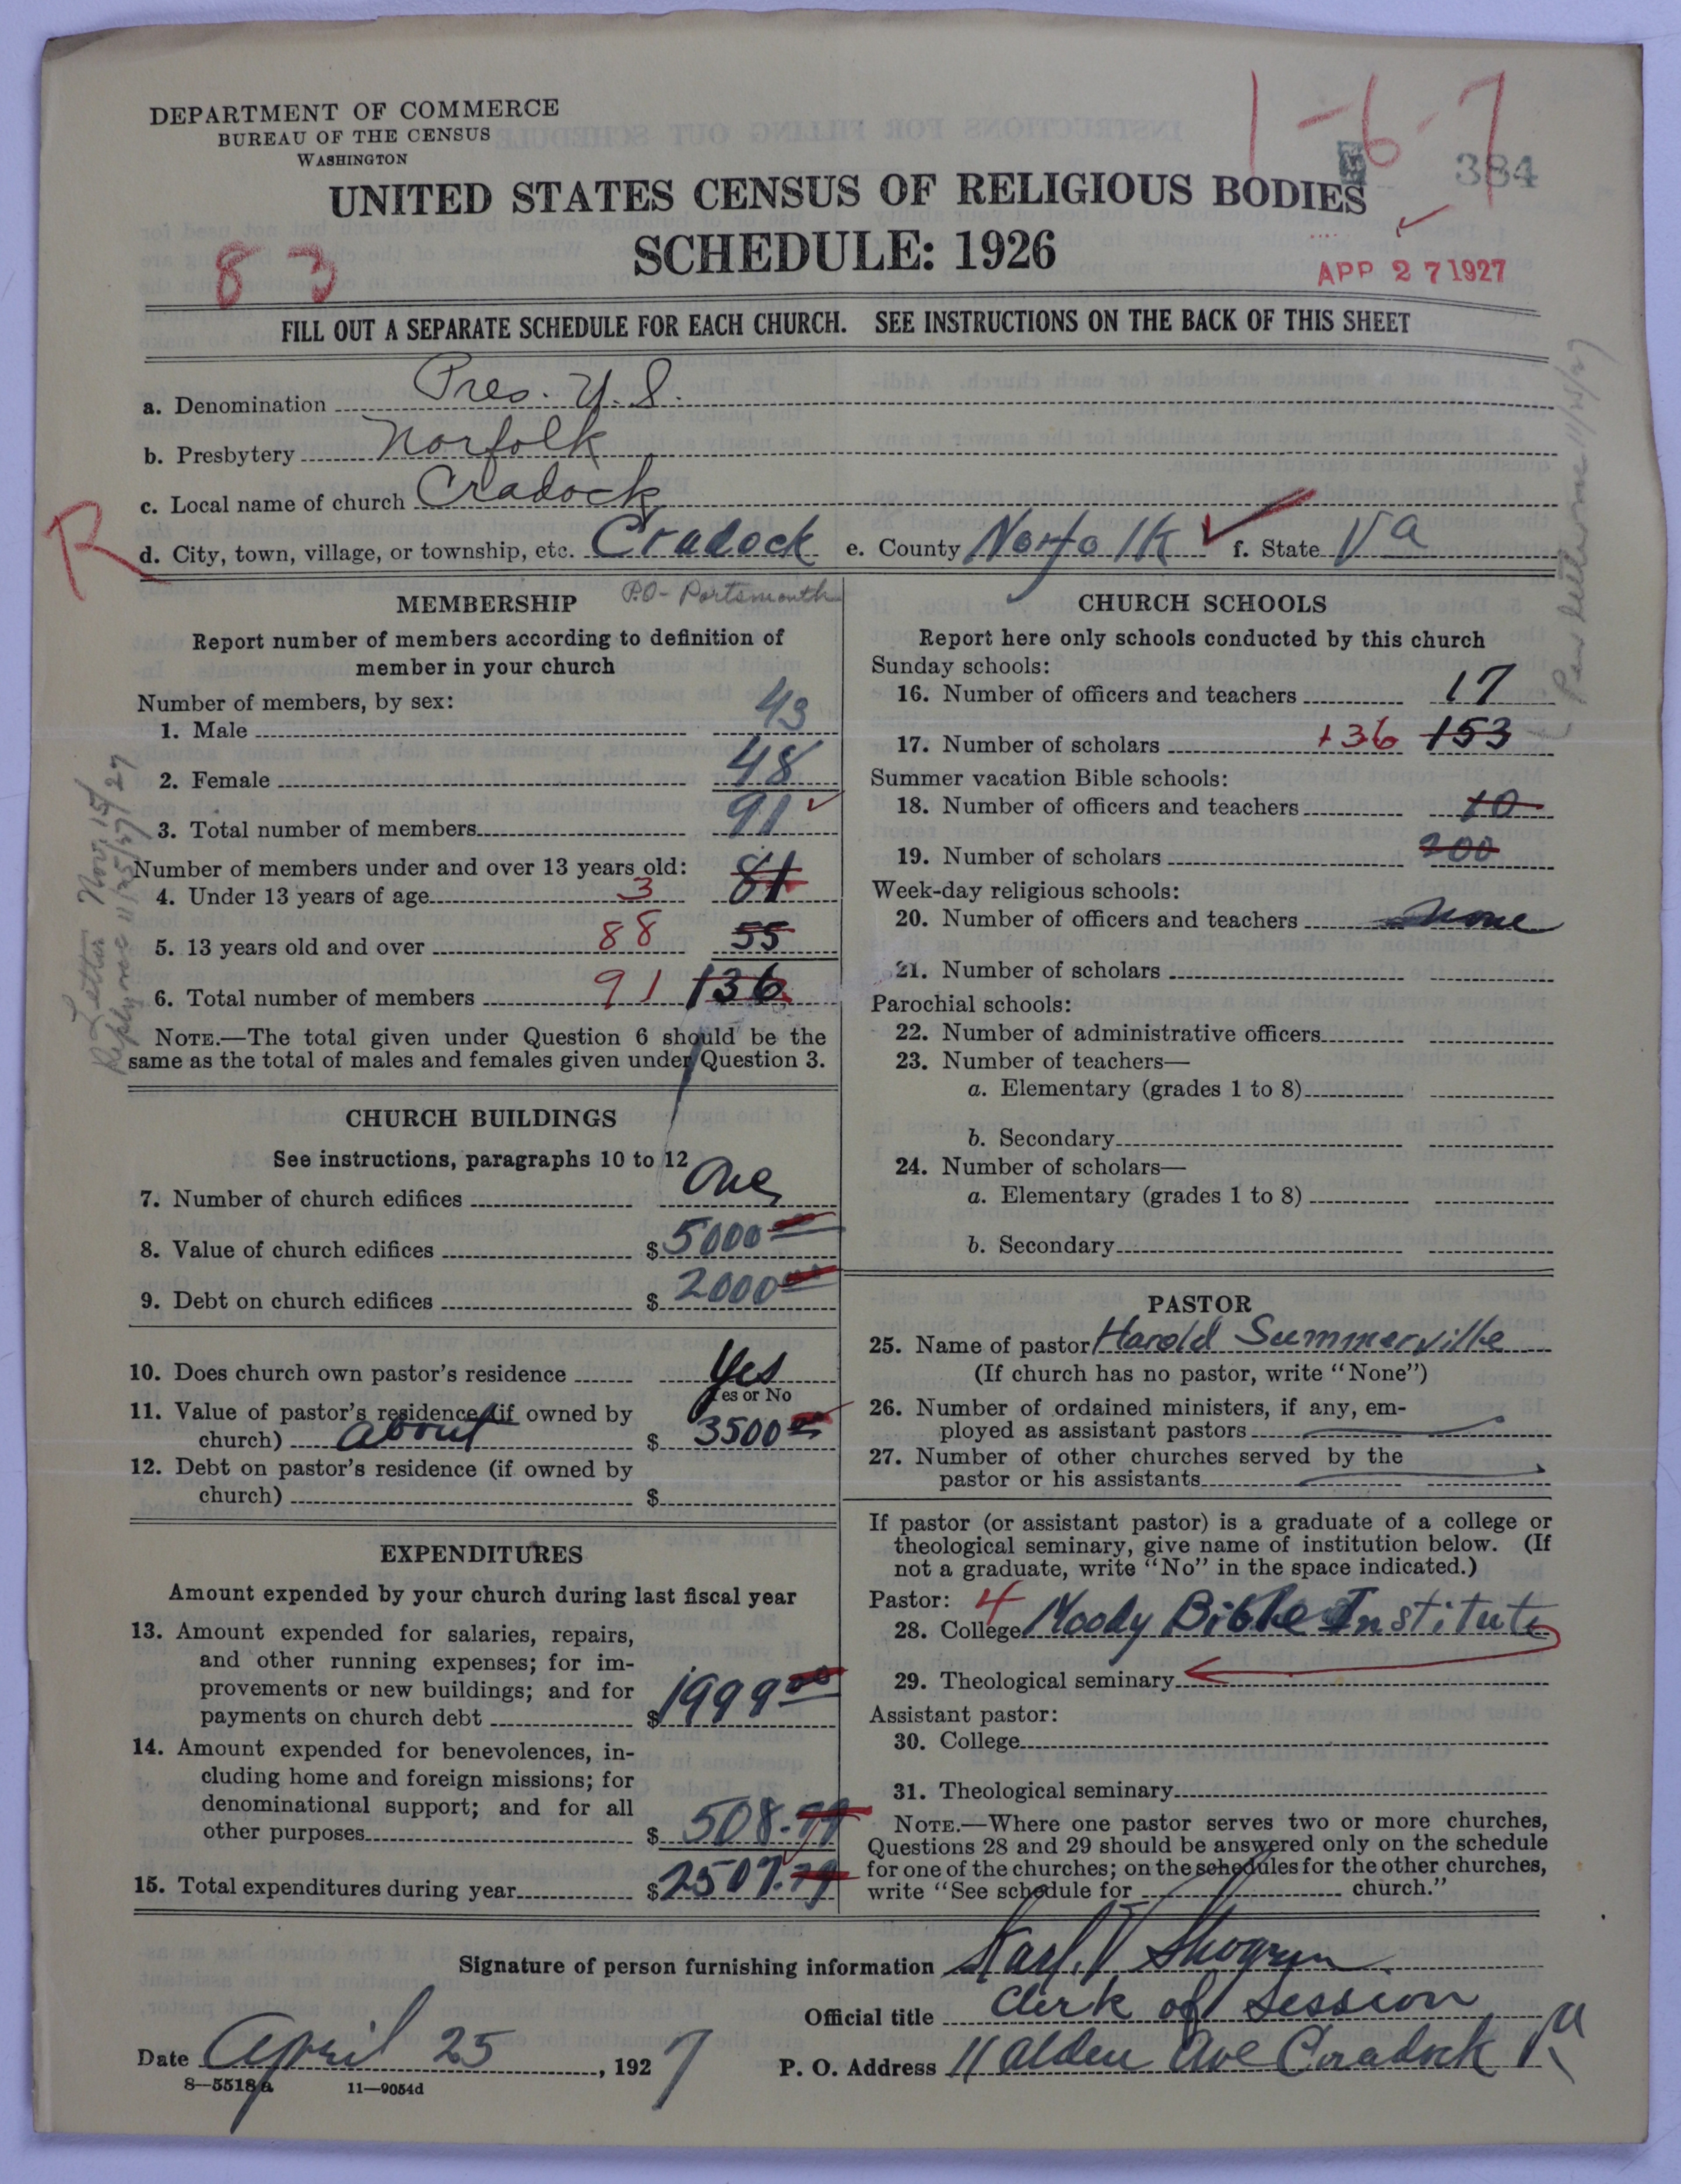 DEPARTMENT OF COMMERCE
BUREAU OF THE CENSUS
WASHINGTON
1-6-7
384
UNITED STATES CENSUS OF RELIGIOUS BODIES
SCHEDULE: 1926
83
APR 27 1927
FILL OUT A SEPARATE SCHEDULE FOR EACH CHURCH. SEE INSTRUCTIONS ON THE BACK OF THIS SHEET
a. Denomination Pres. U.S.
b. Presbytery Norfolk
c. Local name of church Cradock
R
d. City, town, village, or township, etc. Cradock e. County Norfolk f. State Va
P.O- Portsmouth
MEMBERSHIP
Report number of members according to definition of
member in your church
Number of members, by sex:
1. Male 43
2. Female 48
3. Total number of members 91
Number of members under and over 13 years old:
4. Under 13 years of age 3 81
5. 13 years old and over 88 55
6. Total number of members 91 136
NOTE.—The total given under Question 6 should be the
same as the total of males and females given under Question 3.
Letter Nov. 15/27
11/25/27
CHURCH BUILDINGS
See instructions, paragraphs 10 to 12
7. Number of church edifices One
8. Value of church edifices $5000 00
9. Debt on church edifices $2000 00
10. Does church own pastor's residence Yes
Yes or No
11. Value of pastor's residence (if owned by
church) about $3500 00
12. Debt on pastor's residence (if owned by
church) $
EXPENDITURES
Amount expended by your church during last fiscal year
13. Amount expended for salaries, repairs,
and other running expenses; for im-
provements or new buildings; and for
payments on church debt $1999 00
14. Amount expended for benevolences, in-
cluding home and foreign missions; for
denominational support; and for all
other purposes $508.79
15. Total expenditures during year $2507.79
CHURCH SCHOOLS
Report here only schools conducted by this church
Sunday schools:
16. Number of officers and teachers 17
17. Number of scholars 136 153
Summer vacation Bible schools:
18. Number of officers and teachers 10
19. Number of scholars 200
Week-day religious schools:
20. Number of officers and teachers None
21. Number of scholars
Parochial schools:
22. Number of administrative officers
23. Number of teachers—
a. Elementary (grades 1 to 8)
b. Secondary
24. Number of scholars—
a. Elementary (grades 1 to 8)
b. Secondary
PASTOR
25. Name of pastor Harold Summerville
(If church has no pastor, write "None")
26. Number of ordained ministers, if any, em-
ployed as assistant pastors
27. Number of other churches served by the
pastor or his assistants
If pastor (or assistant pastor) is a graduate of a college or
theological seminary, give name of institution below. (If
not a graduate, write "No" in the space indicated.)
Pastor: 4
28. College Moody Bible Institute
29. Theological seminary
Assistant pastor:
30. College
31. Theological seminary
NOTE.—Where one pastor serves two or more churches,
Questions 28 and 29 should be answered only on the schedule
for one of the churches; on the schedules for the other churches,
write "See schedule for church."
Signature of person furnishing information Karl. V
Official title Clerk of Session
Date April 25, 1927 P. O. Address 11 Alden Ave Cradock Va
8—5518a 11—9054d